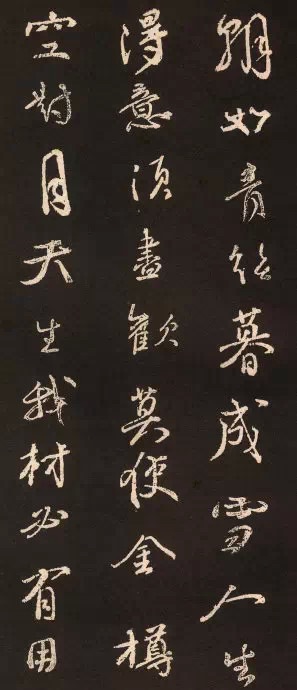 朝如青丝暮成雪人生
得意須盡歡莫使金樽
空對月天生我材必有用